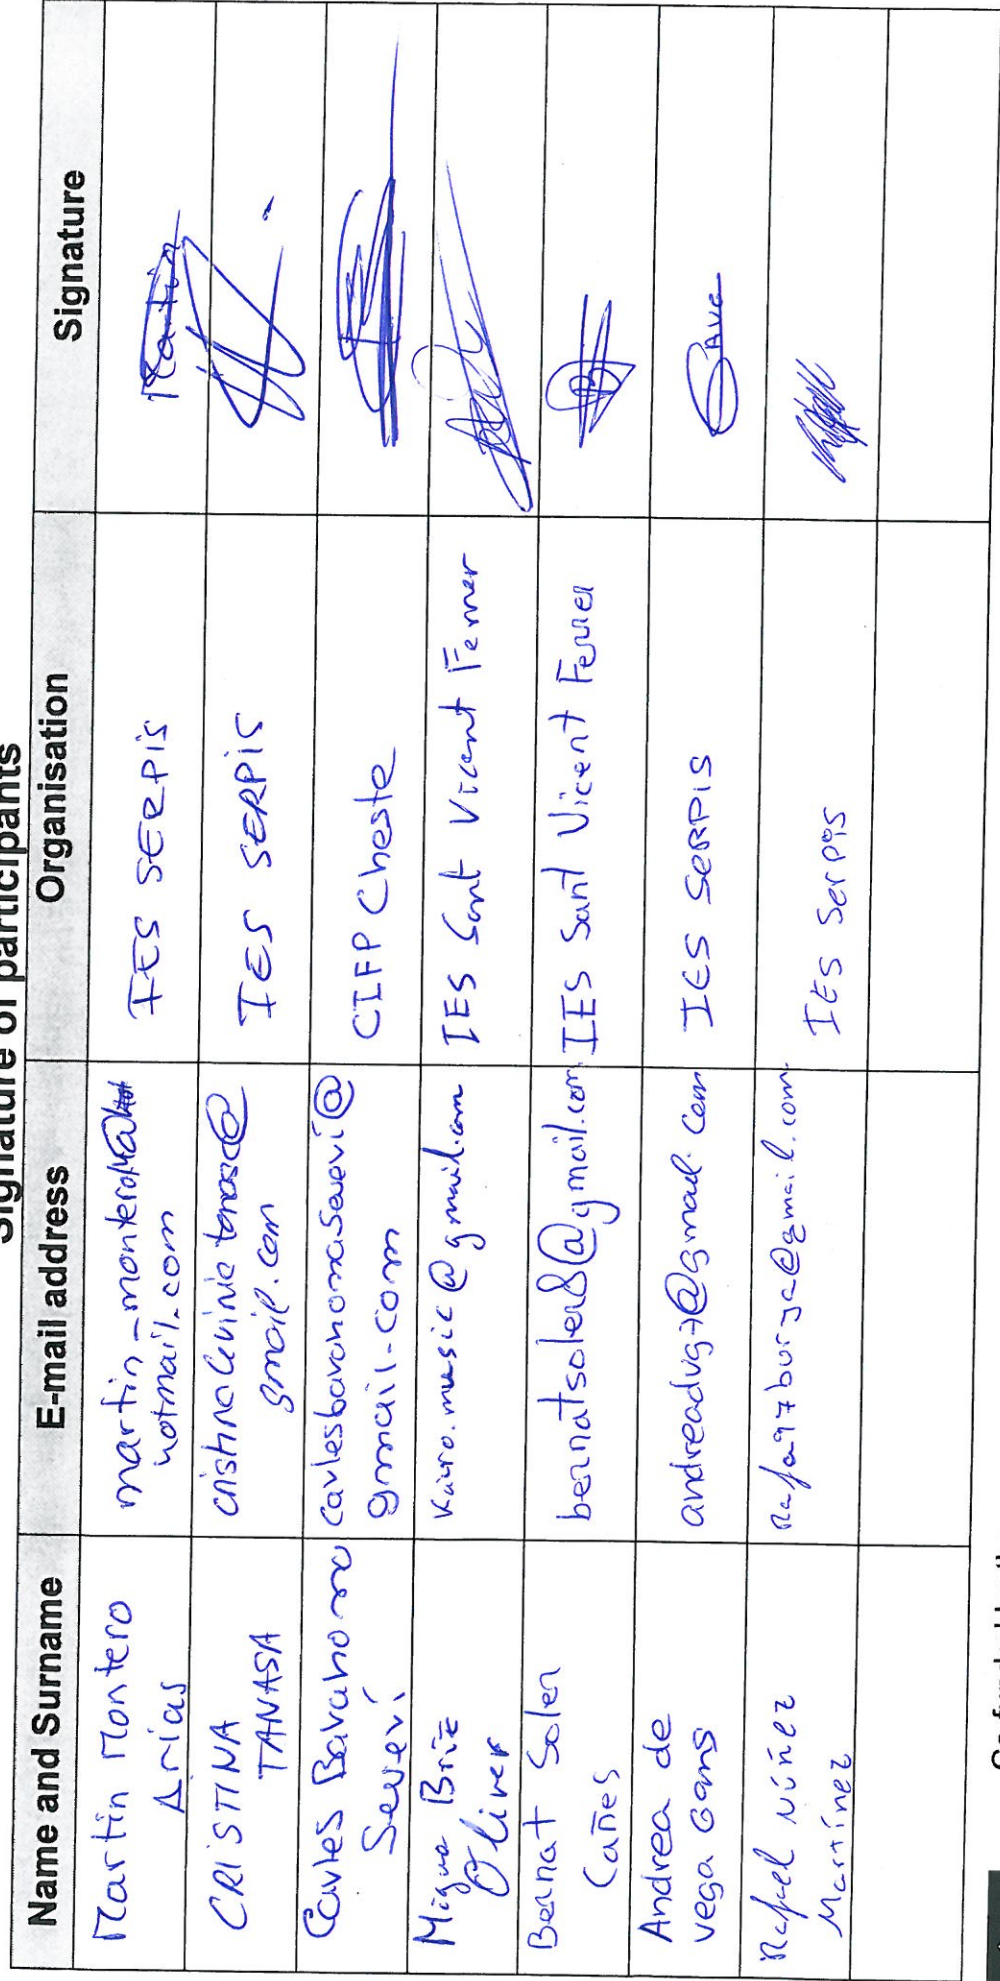 Signature of participants
Name and Surname E-mail address Organisation Signature
Martin Montero
Arias
martin_montero14@
hotmail.com
IES SERPIS
Martin
CRISTINA
TANASA
gmail.com
IES SERPIS
Carles Bavahomo
Severi
gmail.com
CIFP Cheste
Miqua Briz
Oliver
Kairo.music@gmail.com
IES Sant Vicent Ferrer
Bernat Soler
Cañes
bernatsoler8@gmail.com
IES Sant Vicent Ferrer
Andrea de
Vega Gams
andreadvg7@gmail.com
IES SERPIS
Rafael Núñez
Martínez
Rafa97burja@gmail.com
IES Serpis